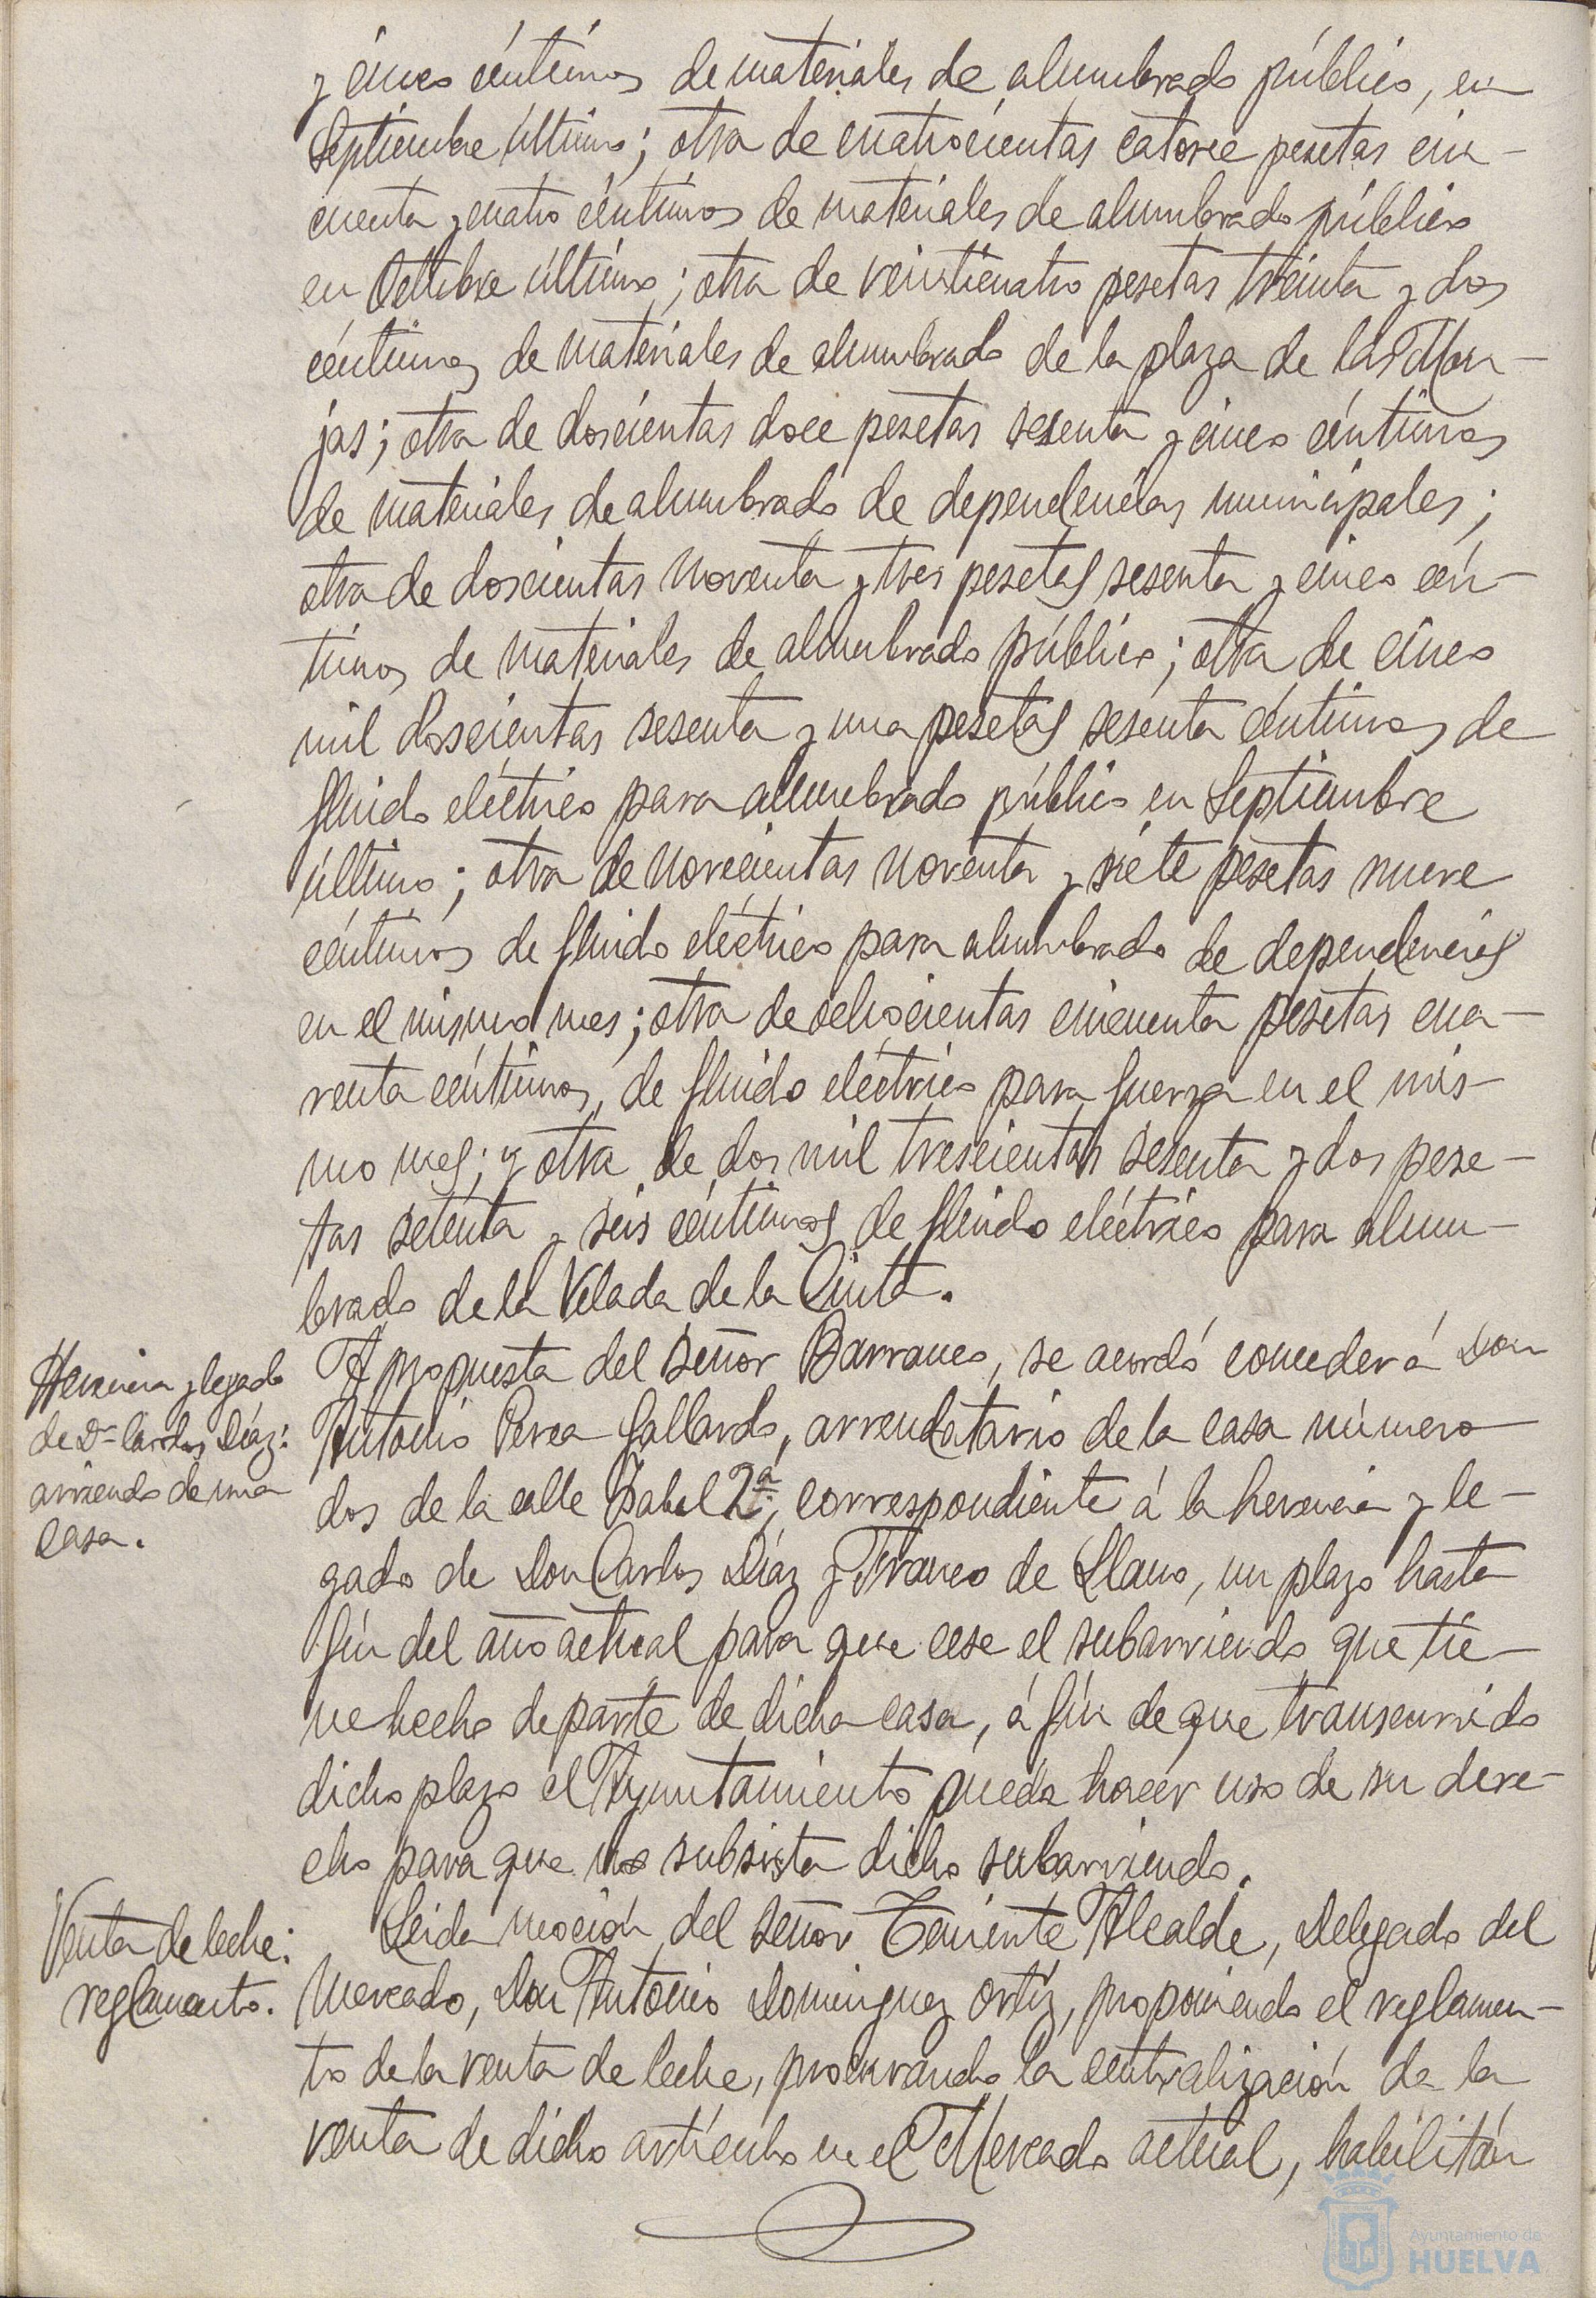 y cinco céntimos de materiales de alumbrado público, en
Septiembre último; otra de cuatrocientas catorce pesetas cin-
cuenta y cuatro céntimos de materiales de alumbrado público
en Octubre último; otra de veinticuatro pesetas treinta y dos
céntimos de materiales de alumbrado de la plaza de las Mon-
jas; otra de doscientas doce pesetas sesenta y cinco céntimos
de materiales de alumbrado de dependencias municipales;
otra de doscientas noventa y tres pesetas sesenta y cinco cén-
timos de materiales de alumbrado público; otra de cinco
mil doscientas sesenta y una pesetas sesenta céntimos de
fluido eléctrico para alumbrado público en Septiembre
último; otra de novecientas noventa y siete pesetas nueve
céntimos de fluido eléctrico para alumbrado de dependencias
en el mismo mes; otra de ochocientas cincuenta pesetas cua-
renta céntimos, de fluido eléctrico para fuerza en el mis-
mo mes; y otra de dos mil trescientas sesenta y dos pese-
tas setenta y seis céntimos de fluido eléctrico para alum-
brado de la Velada de la Cinta.
Herencia y legado
de Dn Carlos Díaz:
arriendo de una
casa.
A propuesta del señor Barranco, se acordó conceder á Don
Antonio Perea Gallardo, arrendatario de la casa número
dos de la calle Isabel 2ª, correspondiente á la herencia y le-
gado de Don Carlos Díaz y Franco de Llano, un plazo hasta
fín del año actual para que cese el subarriendo que tie-
ne hecho de parte de dicha casa, á fín de que transcurrido
dicho plazo el Ayuntamiento pueda hacer uso de su dere-
cho para que no subsista dicho subarriendo.
Venta de leche:
reglamento.
Leida moción del señor Teniente Alcalde, Delegado del
Mercado, Don Antonio Dominguez Ortíz, proponiendo el reglamen-
to de la venta de leche, procurando la centralización de la
venta de dicho artículo en el Mercado actual, habilitán
Ayuntamiento de
HUELVA